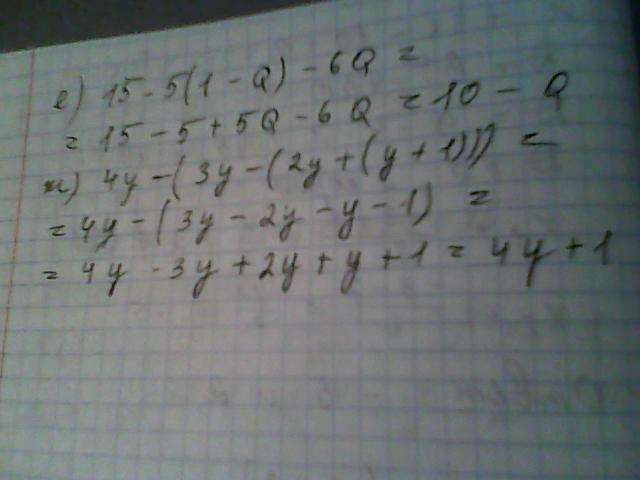 е) 15 - 5(1 - Q) - 6Q =
= 15 - 5 + 5Q - 6Q = 10 - Q
ж) 4y - (3y - (2y + (y + 1))) =
= 4y - (3y - 2y - y - 1) =
= 4y - 3y + 2y + y + 1 = 4y + 1